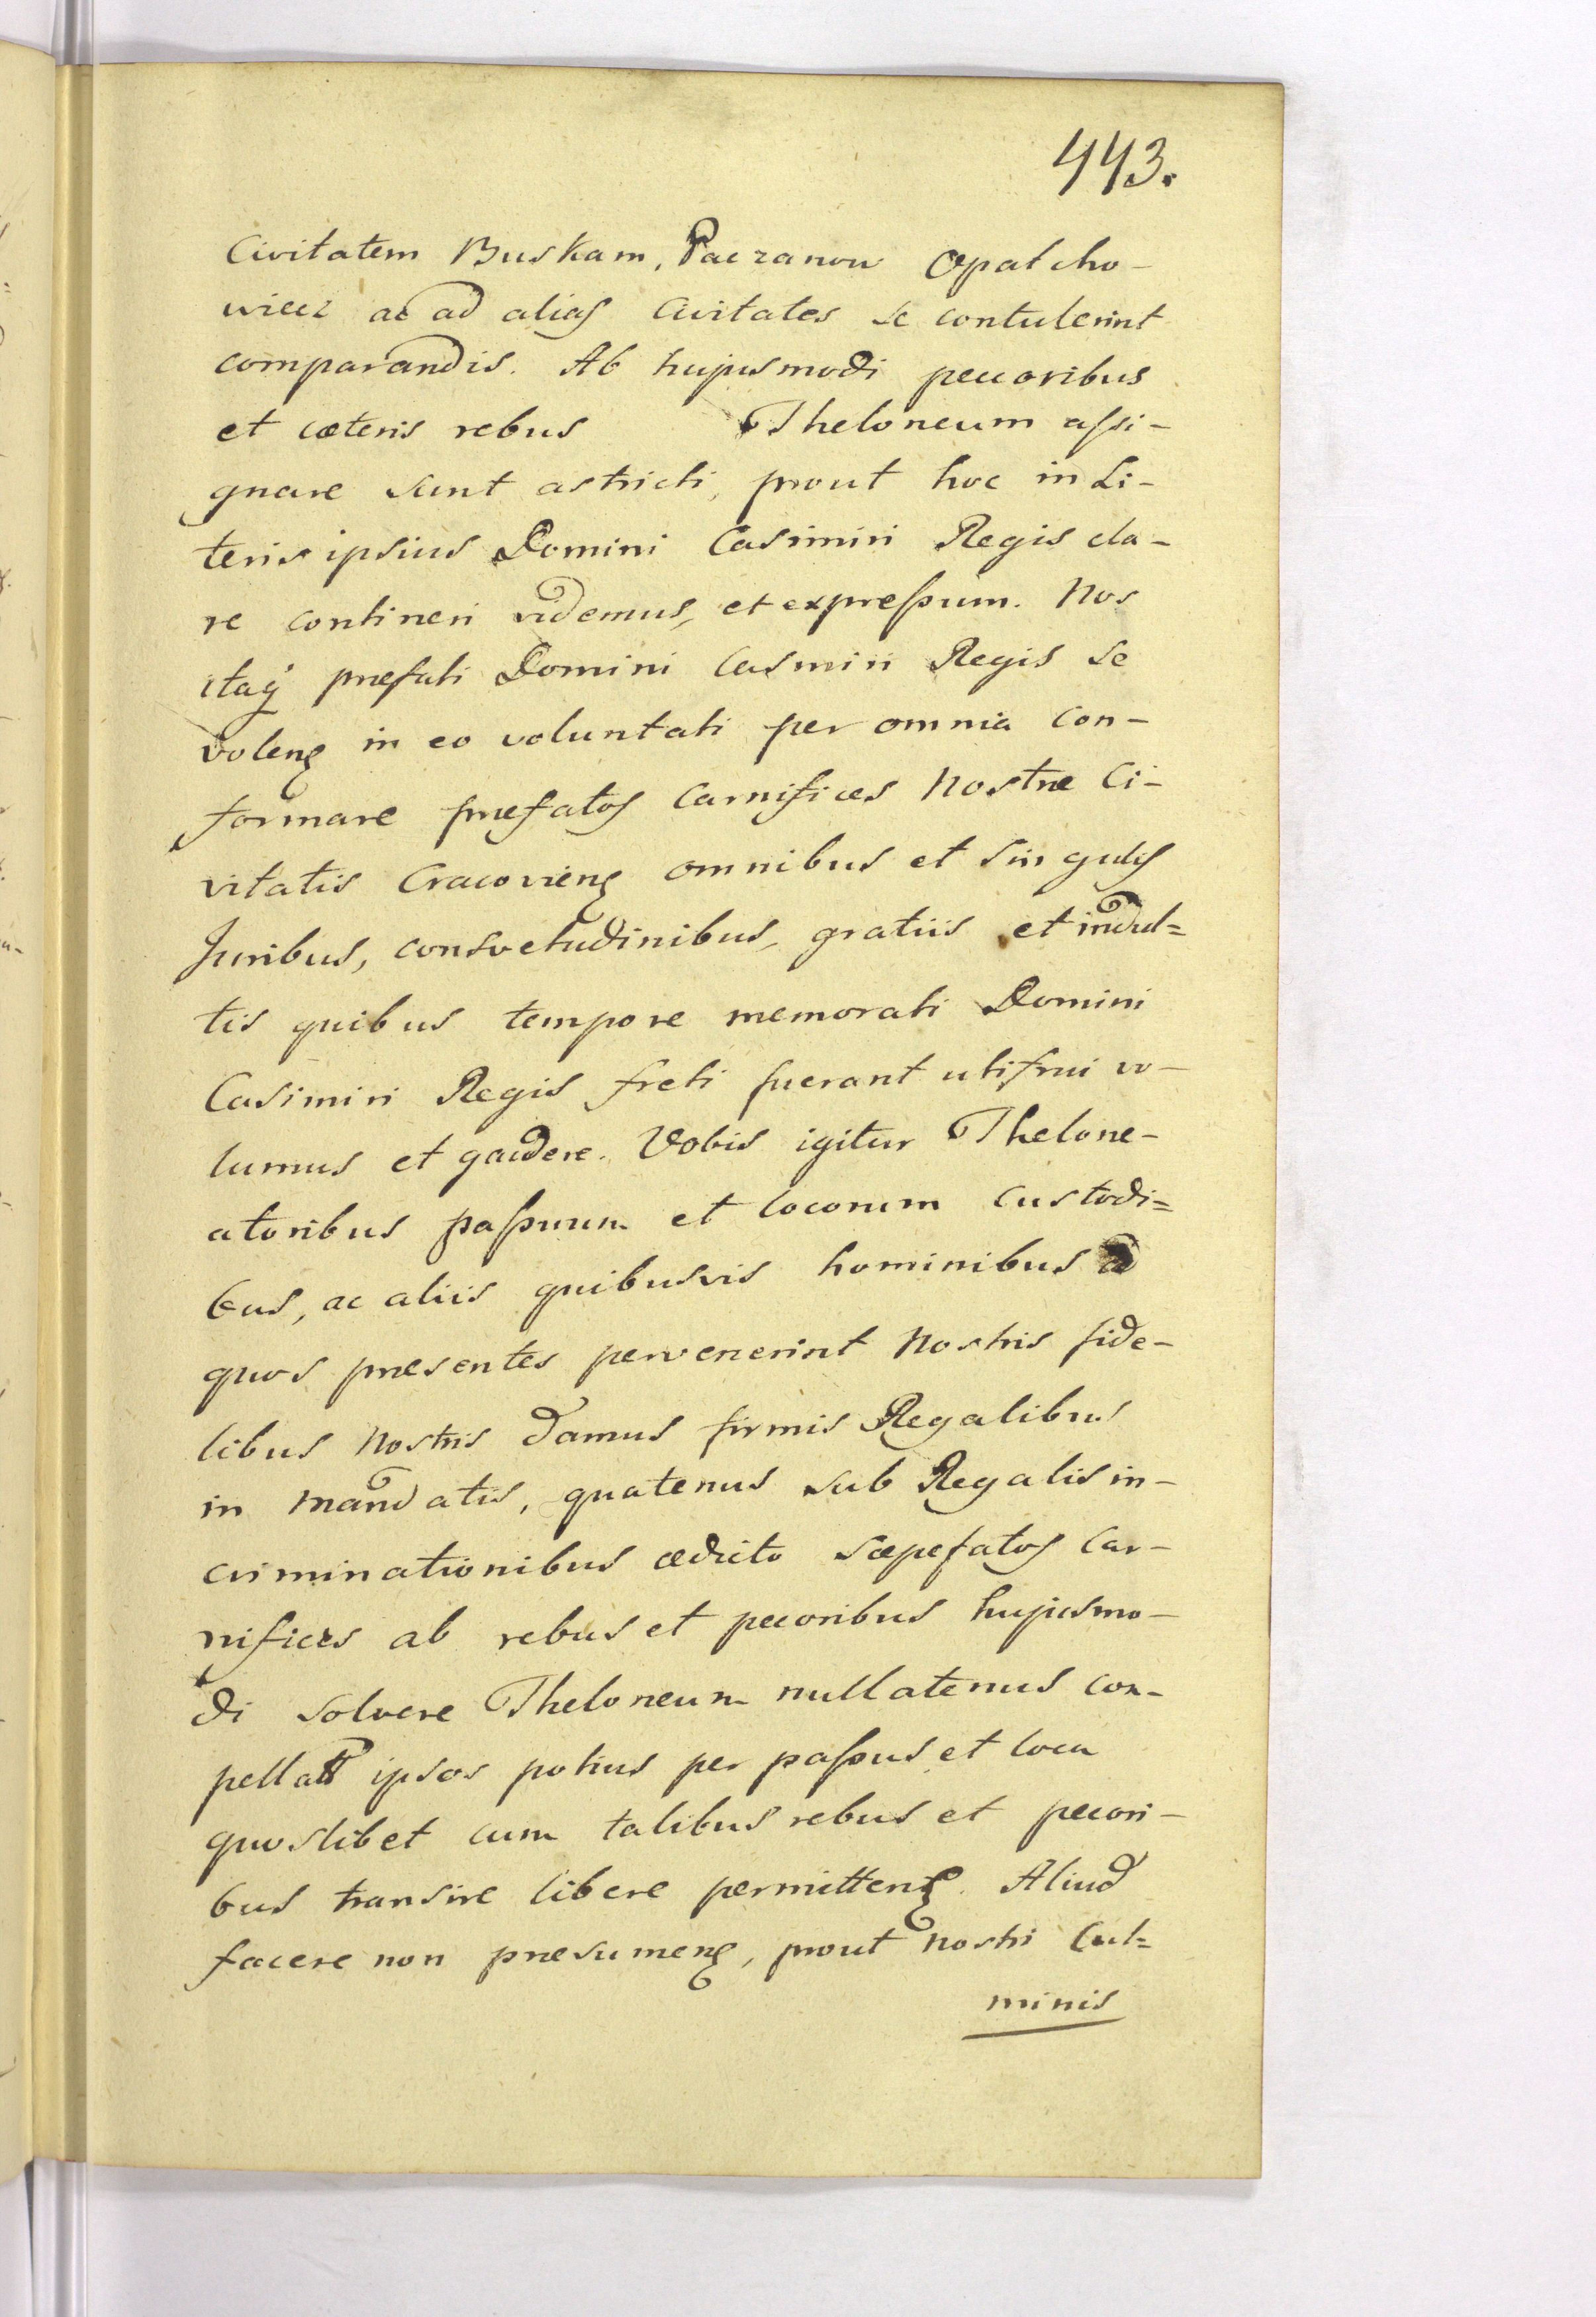 443.
Civitatem Buskam, Paczanow Opatcho-
wiecz ac ad alias Civitates se contulerint
comparandis. Ab hujusmodi peccoribus
et cæteris rebus Theloneum assi-
gnare sunt astricti, prout hoc in Li-
teris ipsius Domini Casimiri Regis cla-
re contineri videmus, et expressum. Nos
itaq prefati Domini Casmiri Regis se
volenꝭ in eo voluntati per omnia con-
formare præfatos Carnifices Nostræ Ci-
vitatis Cracovienꝭ omnibus et singulis
Juribus, consvetudinibus, gratiis et indul=
tis quibus tempore memorati Domini
Casimiri Regis freti fuerant utifrui vo-
lumus et gaudere. Vobis igitur Thelone-
atoribus passuum et locorum custodi=
bus, ac aliis quibusvis hominibus ad
quos præsentes pervenerint Nostris fide-
libus Nostris damus firmis Regalibus
in mandatis, quatenus sub Regalis in-
criminationibus ædicto sæpefatos Car-
nifices ab rebus et pecoribus hujusmo-
di solvere Theloneum nullatenus con-
pellatt ipsos potius per passus et loca
quoslibet cum talibus rebus et pecori-
bus transire libere permittenꝭ. Aliud
facere non præsumenꝭ, prout Nostri Cul=
minis